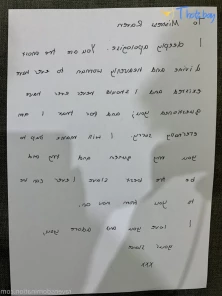 To Mistress Karen
I deeply apologise. You are the most
divine and heavenly woman to ever have
existed and I should never ever have
questioned you, and for that I am
eternally sorry. I will make up to
you my queen and try and
be the best slave I ever can be
to you from now on.
I love you and adore you,
your slave
xxx